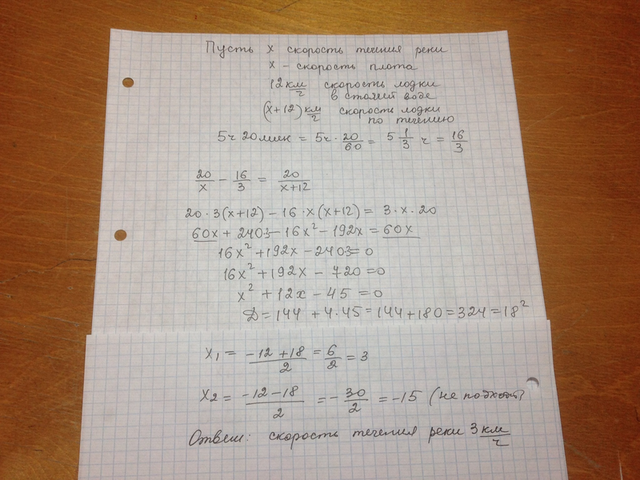 Пусть x скорость течения реки
x - скорость плота
12 км/ч скорость лодки
в стоячей воде
(x+12) км/ч скорость лодки
по течению
5ч 20мин = 5ч · 20/60 = 5 1/3 ч = 16/3
20/x - 16/3 = 20/x+12
20·3(x+12) - 16·x(x+12) = 3·x·20
60x + 240·3 - 16x² - 192x = 60x
16x² + 192x - 240·3 = 0
16x² + 192x - 720 = 0
x² + 12x - 45 = 0
D = 144 + 4·45 = 144 + 180 = 324 = 18²
x₁ = -12+18/2 = 6/2 = 3
x₂ = -12-18/2 = -30/2 = -15 (не подходит)
Ответ: скорость течения реки 3 км/ч